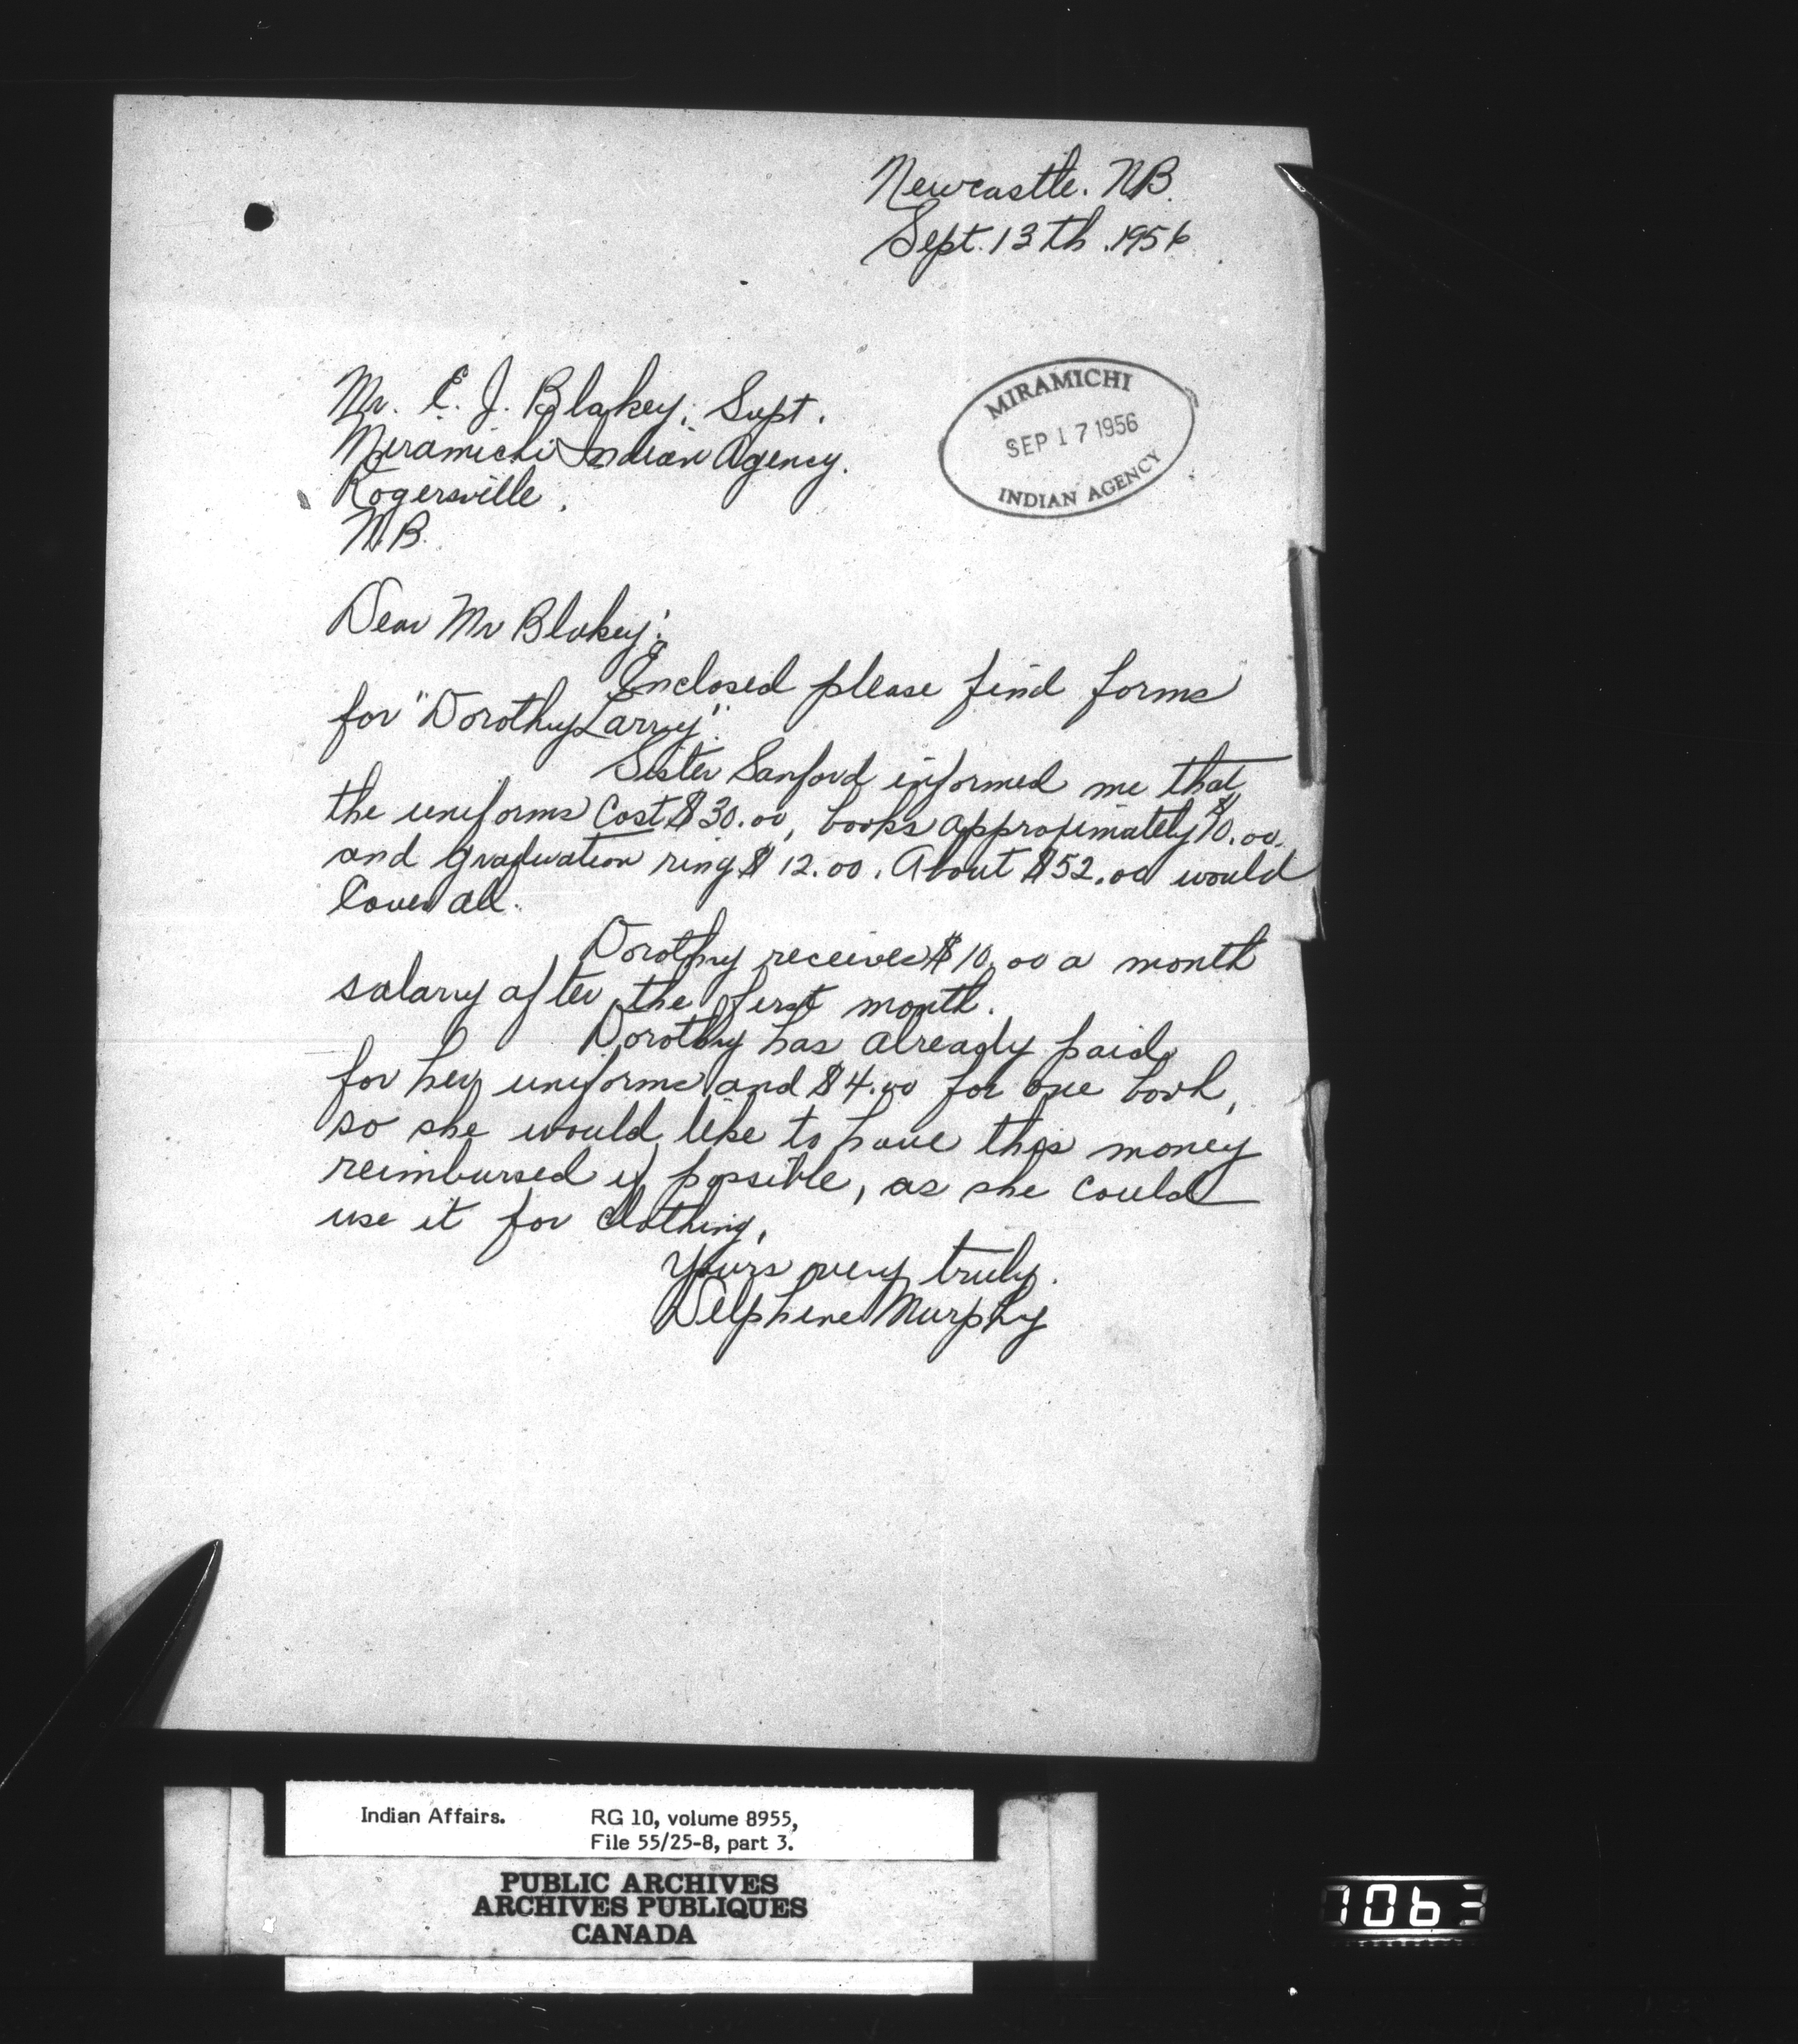 Newcastle. NB.
Sept. 13th. 1956
Mr. E. J. Blakey, Supt.
Miramichi Indian Agency.
Rogersville.
N.B.
MIRAMICHI
SEP 17 1956
INDIAN AGENCY
Dear Mr Blakey:
Enclosed please find forms
for "Dorothy Larry".
Sister Sanford informed me that
the uniforms cost $30.00, books approximately $10.00.
and graduation ring $12.00. About $52.00 would
Cover all.
Dorothy receives $10.00 a month
salary after the first month.
Dorothy has already paid
for her uniforms and $4.00 for one book,
so she would like to have this money
reimbursed if possible, as she could
use it for clothing.
Yours very truly.
Delphine Murphy
Indian Affairs. RG 10, volume 8955,
File 55/25-8, part 3.
PUBLIC ARCHIVES
ARCHIVES PUBLIQUES
CANADA
1063